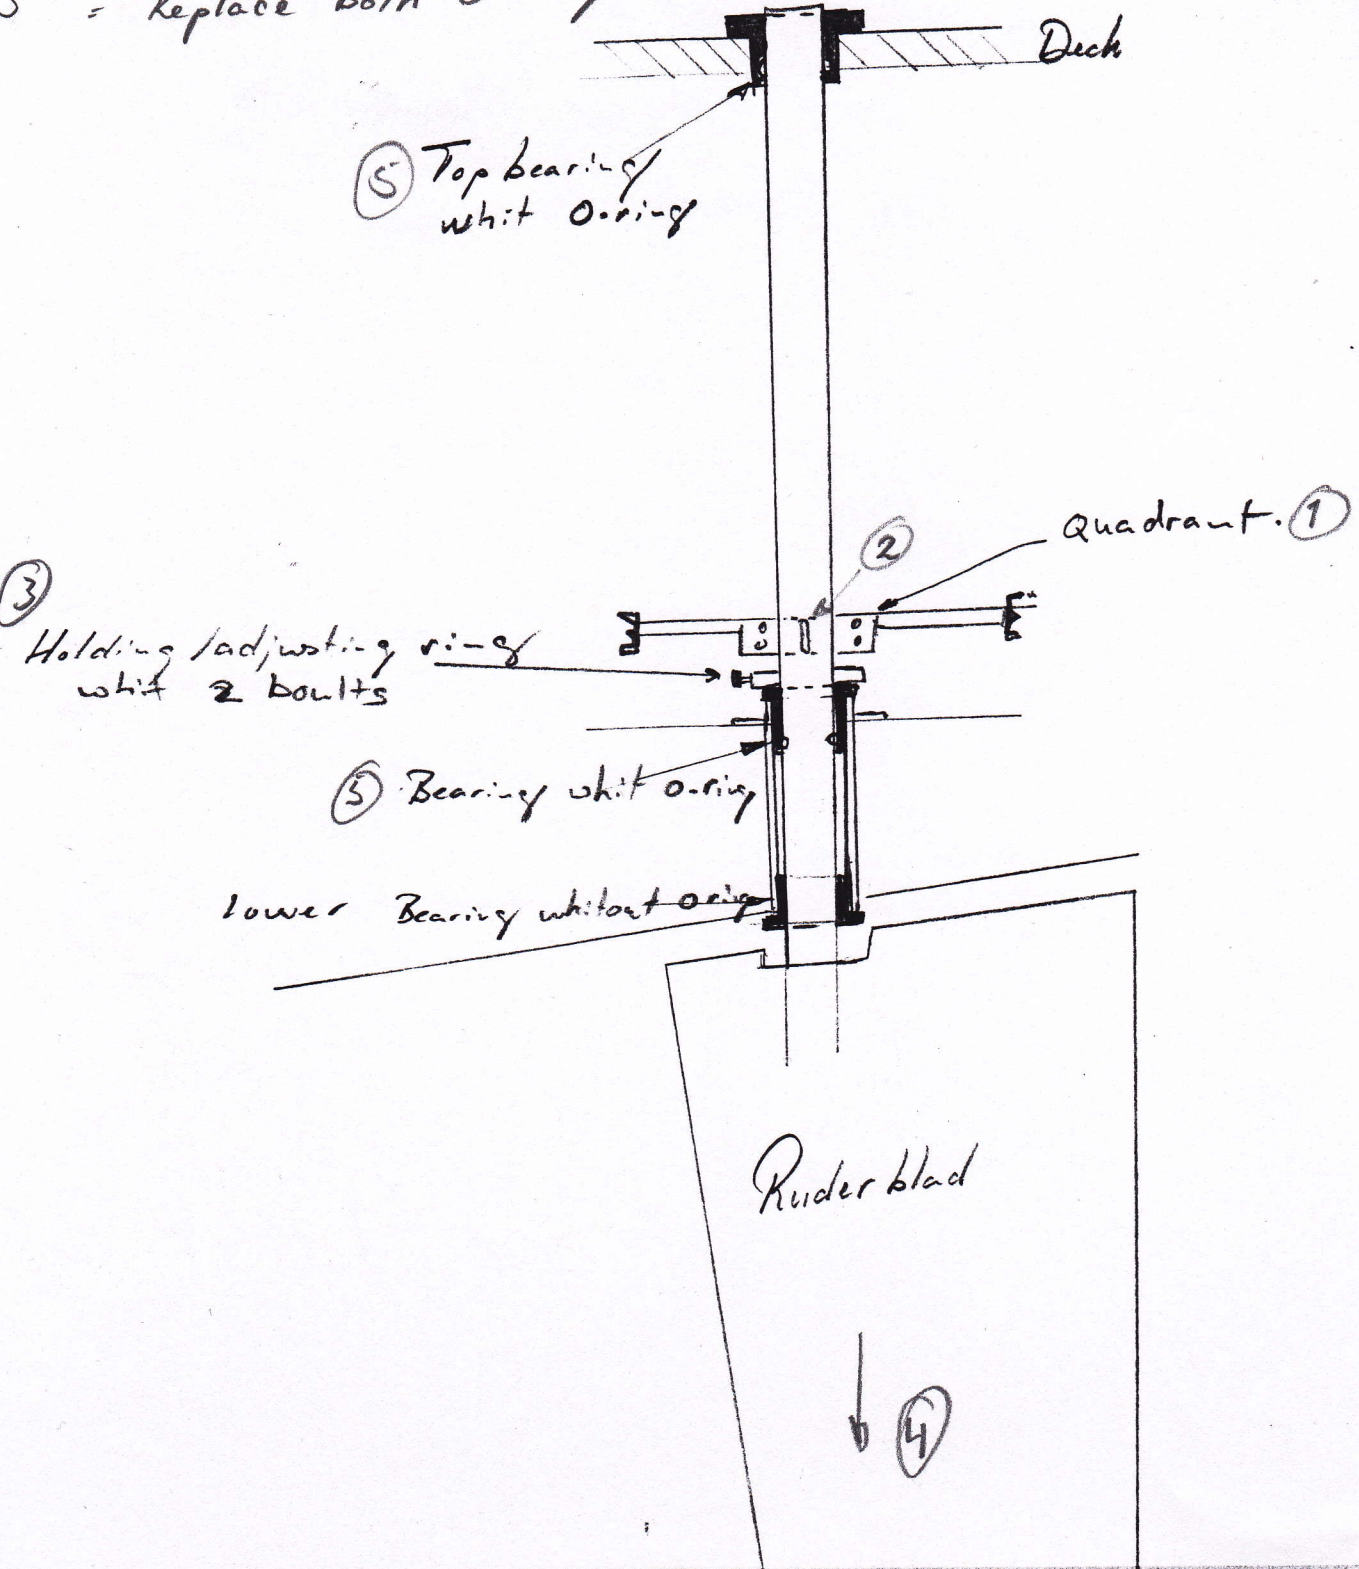 5 = Replace both
Deck
5 Top bearing
whit O-ring
Quadrant. 1
2
3
Holding/adjusting ring
whit 2 boults
5 Bearing whit o-ring
Lower Bearing whitout O ring
Ruder blad
4